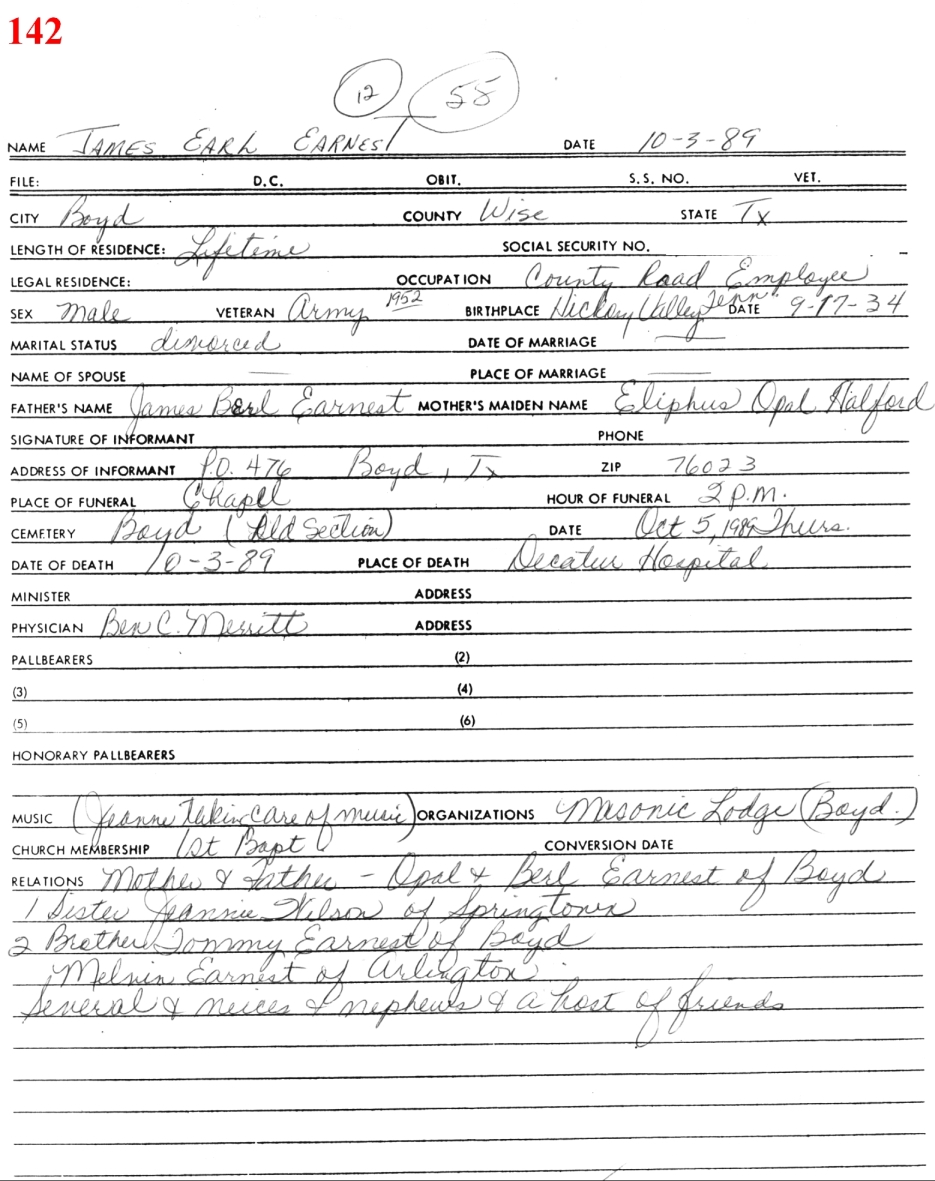 142
12 55
NAME JAMES EARL EARNEST DATE 10-3-89
FILE: D.C. OBIT. S.S. NO. VET.
CITY Boyd COUNTY Wise STATE Tx
LENGTH OF RESIDENCE: Lifetime SOCIAL SECURITY NO.
LEGAL RESIDENCE: OCCUPATION County Road Employee
SEX Male VETERAN Army 1952 BIRTHPLACE Hickory Valley Tenn DATE 9-17-34
MARITAL STATUS divorced DATE OF MARRIAGE —
NAME OF SPOUSE — PLACE OF MARRIAGE —
FATHER'S NAME James Berl Earnest MOTHER'S MAIDEN NAME Eliphus Opal Halford
SIGNATURE OF INFORMANT PHONE
ADDRESS OF INFORMANT P.O. 476 Boyd, Tx ZIP 76023
PLACE OF FUNERAL Chapel HOUR OF FUNERAL 2 P.M.
CEMETERY Boyd (Old Section) DATE Oct 5, 1989 Thurs.
DATE OF DEATH 10-3-89 PLACE OF DEATH Decatur Hospital
MINISTER ADDRESS
PHYSICIAN Ben C. Merritt ADDRESS
PALLBEARERS (2)
(3) (4)
(5) (6)
HONORARY PALLBEARERS
MUSIC (Jeanne takin care of music) ORGANIZATIONS Masonic Lodge (Boyd.)
CHURCH MEMBERSHIP 1st Bapt CONVERSION DATE
RELATIONS Mother & Father - Opal & Berl Earnest of Boyd
1 Sister Jeannie Wilson of Springtown
2 Brother Tommy Earnest of Boyd
Melvin Earnest of Arlington
Several & neices & nephews & a host of friends